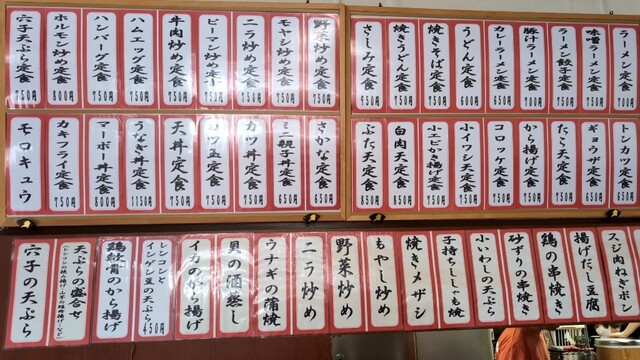 ラーメン定食
700円
味噌ラーメン定食
ラーメン餃子定食
豚汁ラーメン定食
700円
カレーラーメン定食
うどん定食
600円
焼きそば定食
焼きうどん定食
さしみ定食
野菜炒め定食
750円
モヤシ炒め定食
750円
ニラ炒め定食
750円
ピーマン炒め定食
750円
牛肉炒め定食
750円
ハムエッグ定食
750円
ハンバーグ定食
750円
ホルモン炒め定食
800円
穴子天ぷら定食
750円
トンカツ定食
ギョウザ定食
たら天定食
から揚げ定食
750円
コロッケ定食
750円
小イワシ天定食
小エビかき揚げ定食
750円
白肉天定食
850円
ぶた天定食
850円
さかな定食
650円
ミニ親子丼定食
650円
カツ丼定食
カツ玉定食
750円
天丼定食
750円
うなぎ丼定食
1150円
マーボー丼定食
800円
カキフライ定食
750円
モロキュウ
スジ肉ねぎポン
揚げだし豆腐
鶏の串焼き
砂ずりの串焼き
小いわしの天ぷら
子持ちししゃも焼
焼きメザシ
もやし炒め
野菜炒め
ニラ炒め
ウナギの蒲焼
貝の酒蒸し
イカのから揚げ
レンコンと
インゲン豆の天ぷら
450円
鶏軟骨のから揚げ
天ぷらの盛合せ
穴子の天ぷら